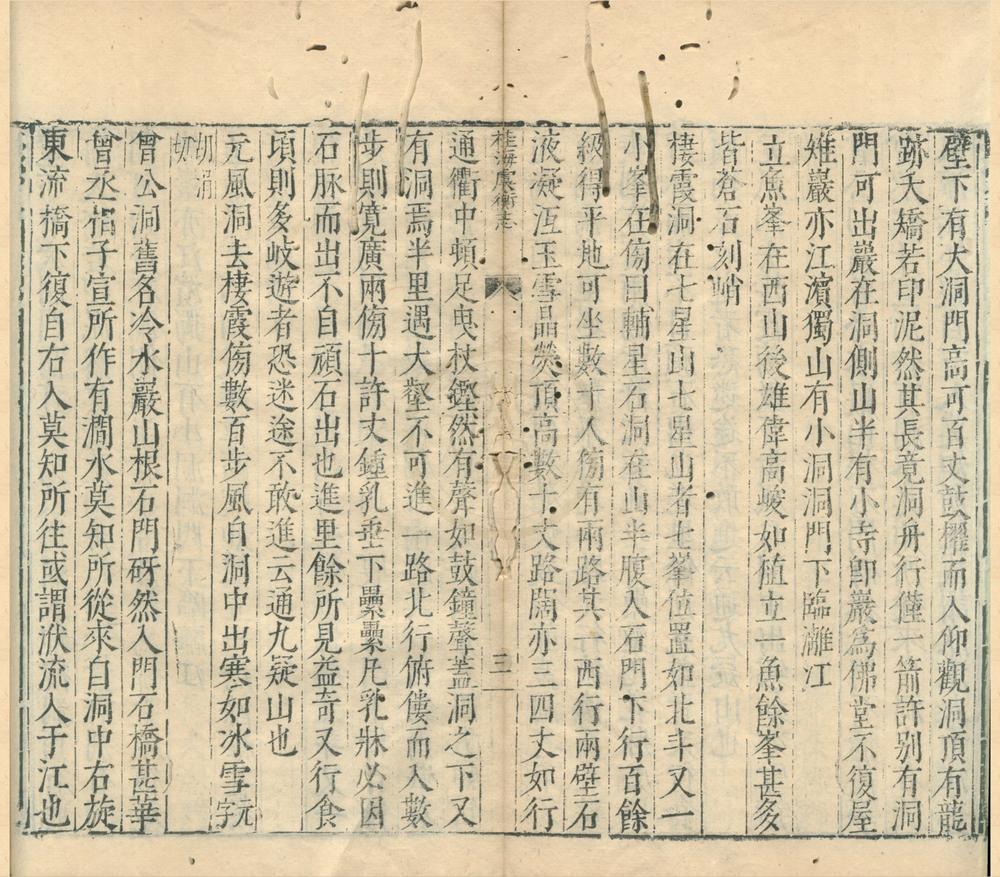 壁下有大洞門高可百丈鼓櫂而入仰觀洞頂有龍
跡夭矯若印泥然其長竟洞舟行僅一箭許别有洞
門可出巖在洞側山半有小寺即巖爲佛堂不復屋
雉巖亦江濵獨山有小洞洞門下臨灕江
立魚峯在西山後雄偉高峻如植立一魚餘峯甚多
皆蒼石刻峭
棲霞洞在七星山七星山者七峯位置如北斗又一
小峯在傍曰輔星石洞在山半腹入石門下行百餘
級得平地可坐數十人傍有兩路其一西行兩壁石
液凝沍玉雪晶熒頂高數十丈路闊亦三四丈如行
桂海虞衡志
三
通衢中頓足曳杖鏗然有聲如鼓鐘聲蓋洞之下又
有洞焉半里遇大壑不可進一路北行俯僂而入數
步則寛廣兩傍十許丈鍾乳垂下纍纍凡乳牀必因
石脉而出不自頑石出也進里餘所見益奇又行食
頃則多岐遊者恐迷途不敢進云通九疑山也
元風洞去棲霞傍數百步風自洞中出寒如冰雪
曾公洞舊名冷水巖山根石門砑然入門石橋甚華
曾丞相子宣所作有澗水莫知所從來自洞中右旋
東流橋下復自右入莫知所往或謂洑流入于江也